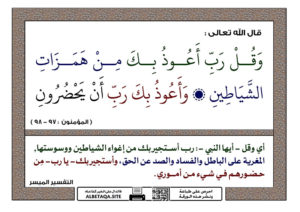 قال الله تعالى :
وَقُلْ رَبِّ أَعُوذُ بِكَ مِنْ هَمَزَاتِ
الشَّيَاطِينِ ۞ وَأَعُوذُ بِكَ رَبِّ أَنْ يَحْضُرُونِ
( المؤمنون : ٩٧ - ٩٨ )
أي وقل - أيها النبي -: رب أستجير بك من إغواء الشياطين ووسوستها،
المغرية على الباطل والفساد والصد عن الحق، وأستجير بك - يا رب- من
حضورهم في شيء من أموري.
التفسير الميسر
احرص على طباعة
ونشر هذه الورقة
ALBETAQA.SITE